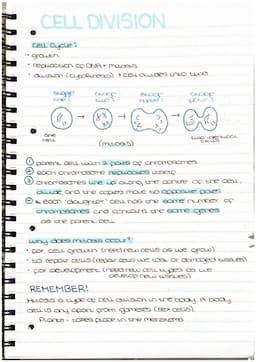 CELL DIVISION
Cell Cycle:
• growth
• replication of DNA + mitosis
• division (cytokinesis) + cell divides into two
stage one! stage two! stage three! stage four!
one cell
two identical cells
(mitosis)
① parent cell with 2 pairs of chromosomes
② each chromosome replicates itself
③ chromosomes line up along the centre of the cell,
divide and the copies move to opposite poles
④ each 'daughter' cell has the same number of
chromosomes and contains the same genes
as the parent cell
Why does mitosis occur?
• for cell growth (need new cells as we grow)
• to repair cells (repair cells we lose or damaged tissues)
• for development (need new cell types as we
develop new tissues)
REMEMBER!
Mitosis is type of cell division in the body. A body
cell is any apart from gametes (sex cells).
Plants - takes place in the meristems